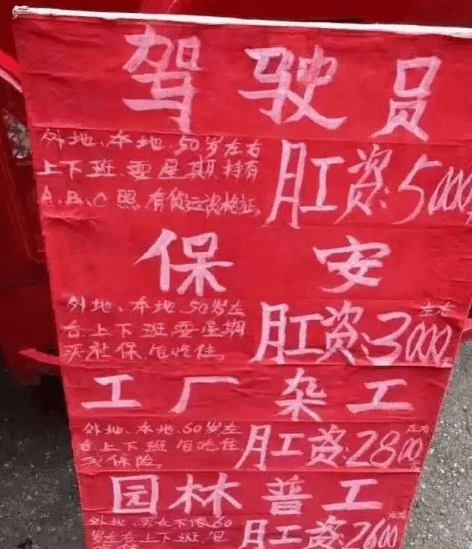 驾驶员
外地、本地、50岁左右
上下班、星期持有
A、B、C照、有货运资格证、
月工资:5000
保安
外地、本地、50岁左
右上下班星期
买社保包吃住。
左右
月工资:3000元
工厂杂工
外地、本地、60岁左
右上下班包吃住
买保险。
左右
月工资:2800
园林普工
外地、男女不限60
岁左右上下班、包
月工资:2600